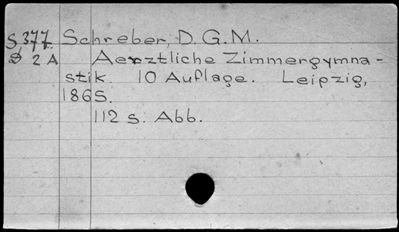 S 377. Schreber, D. G. M.
S 2 A Aerztliche Zimmergymna-
stik. 10 Auflage. Leipzig,
1865.
112 s. Abb.